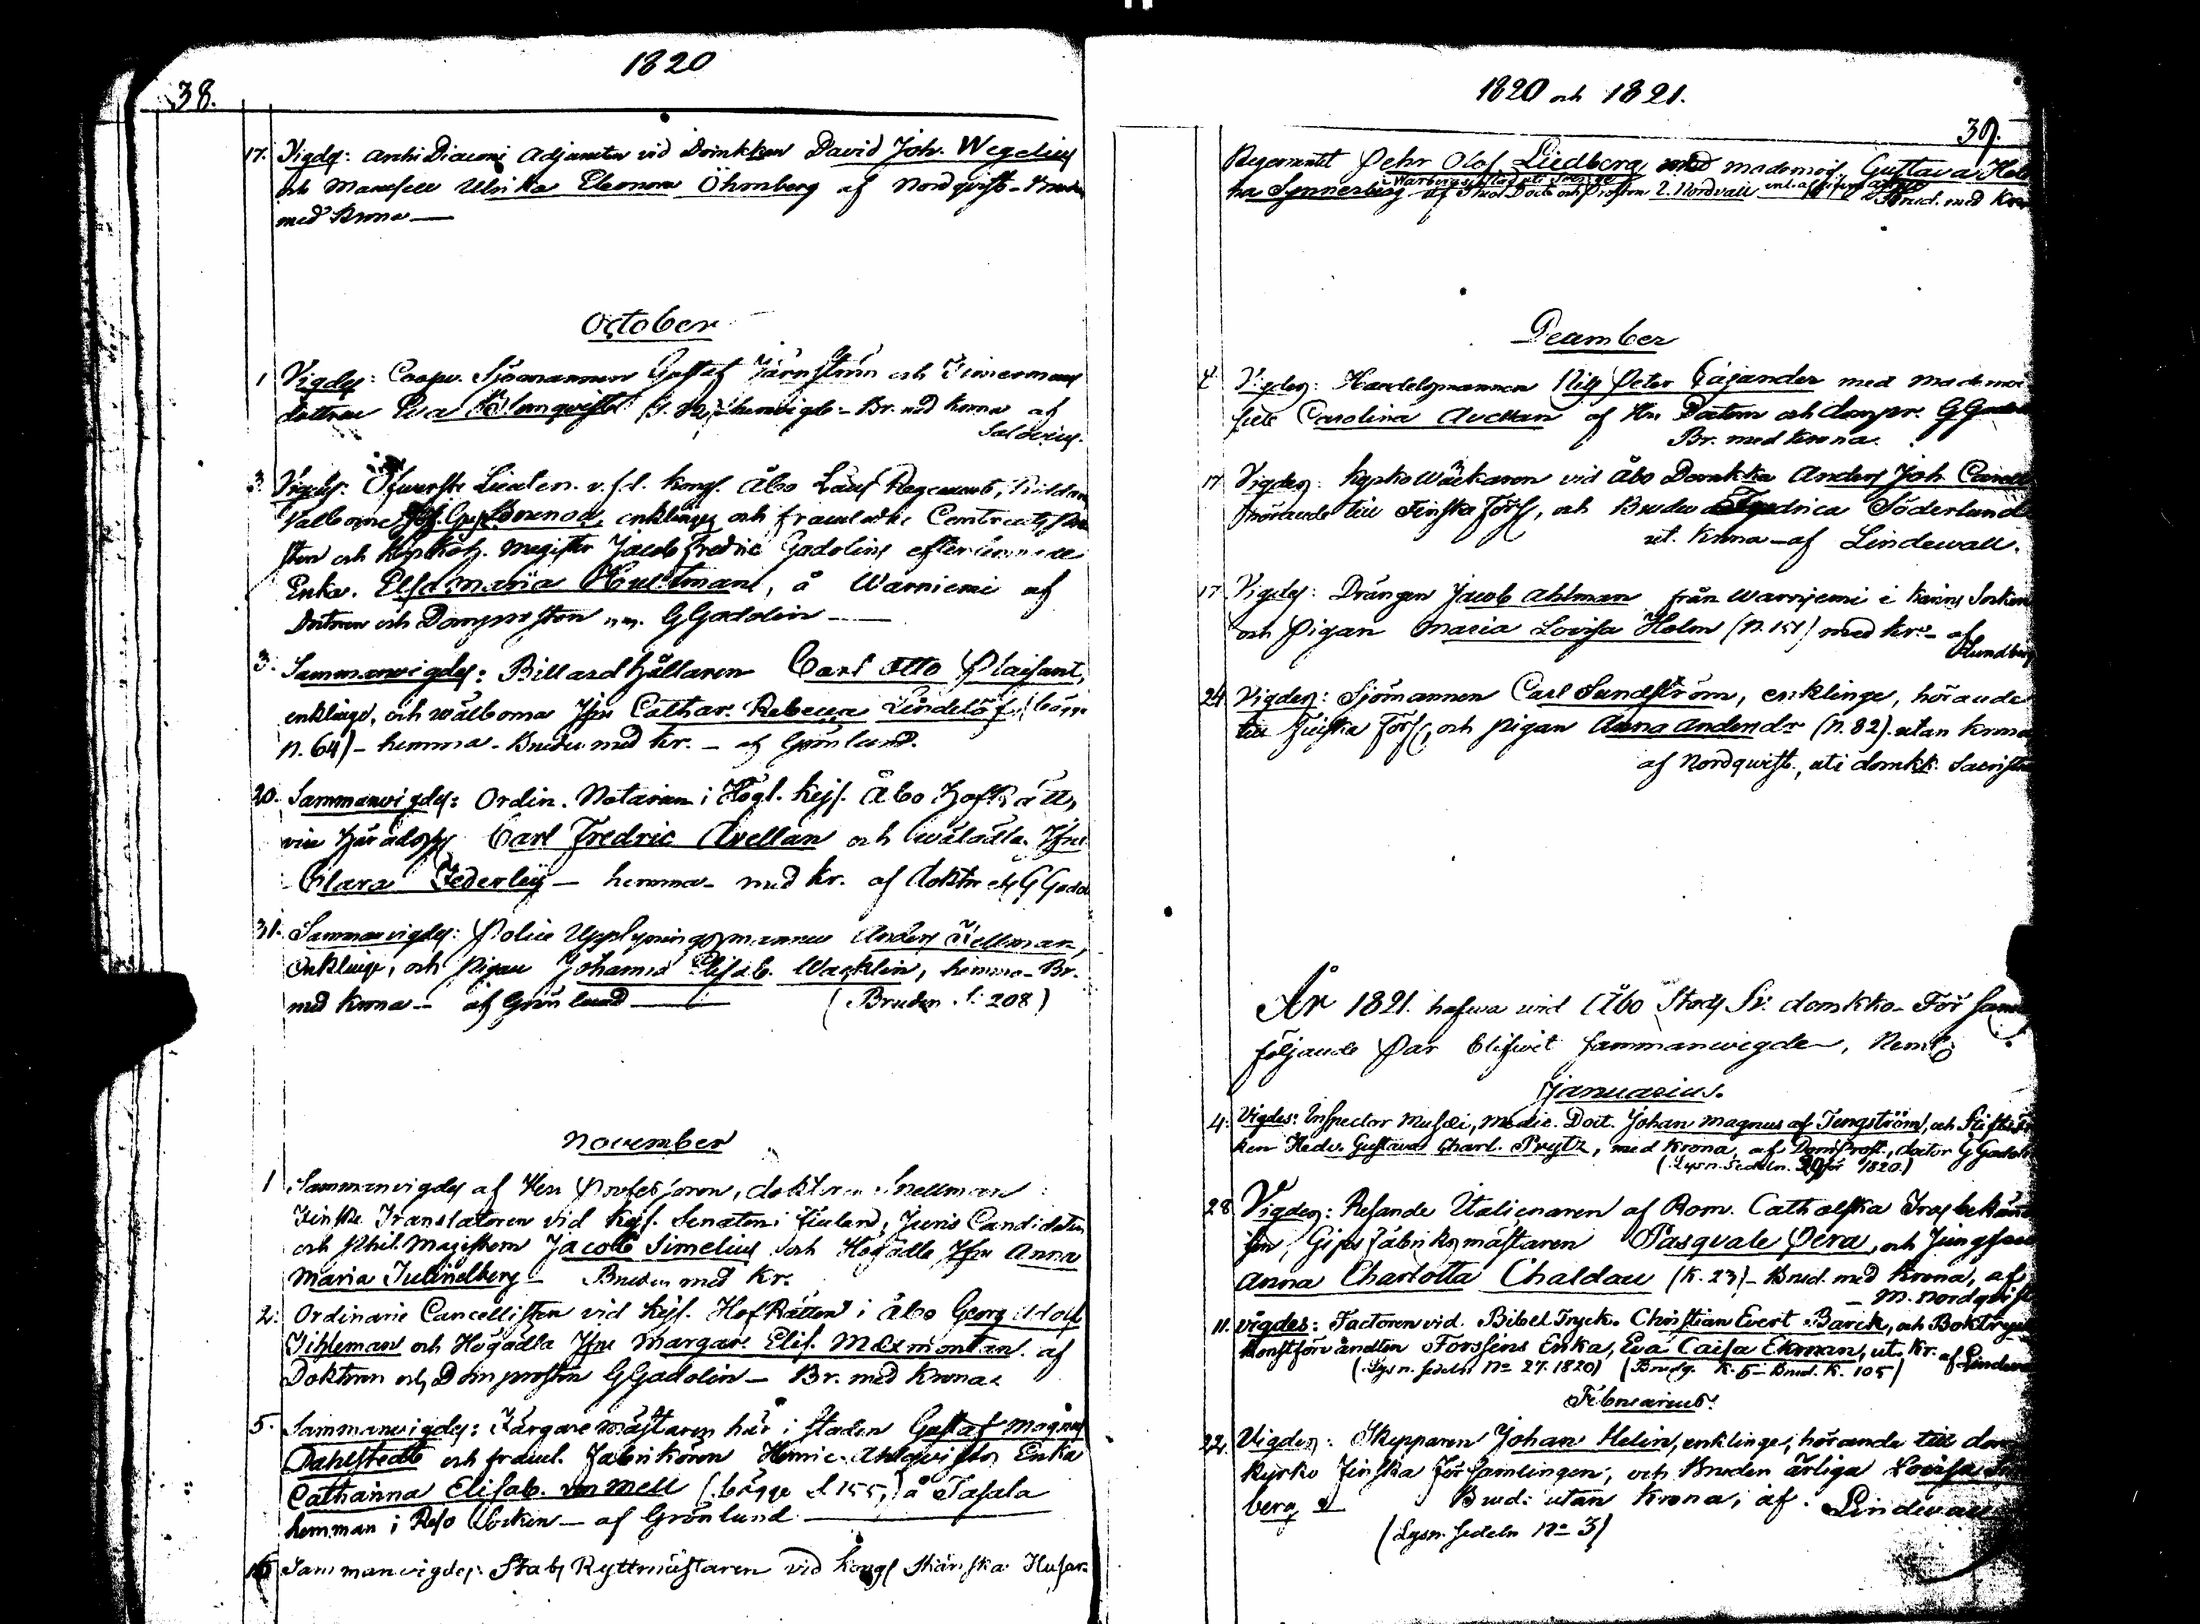 1820
38.
17. Vigdes: Archi Diaconi Adjuncten vid Domkkan David Joh. Wegelius
och Mamsell Ulrika Eleonora Öhrnberg af Nordqvist - Bruden
med Krona
October
1 Vigdes: Coopv. Sjömannen Gustaf Järnström och Timermans
dottren Eva Blomqvist hemvigde - Br. med krona af
Salovius.
3. Vigdes: Öfverste Lieuten. v. f.d. kongl. Åbo Läns Regemente,
enklinge och framledne
och Kyrkoh. Magister Jacob Fredric Gadolins efterlemnade
Enka. Elsa Maria Hultman, å Warniemi af
Doktorn och Domprosten m.m. G Gadolin
3. Sammanvigdes: Billardhållaren Carl Otto Plaisant,
enklinge, och wälborna Jfru Cathar. Rebecca Lindelöf (bägge
N. 64) - hemma - Bruden med kr. - af Grönlund.
20. Sammanvigdes: Ordin. Notarien i Högl. Kejs. Åbo HofRätt,
vice Häradshfg Carl Fredric Avellan och wälädla Jfru
Clara Federley - hemma - med kr. af doktor etc G Gadol
31. Sammanvigdes: Police Upplysningsmannen Anders Kellman,
Enklinge, och pigan Johanna Elisab. Wacklin, hemma - Br.
med krona - af Grönlund (Bruden S: 208)
November
1 Sammanvigdes af Herr Professoren, doktoren Snellman
Finske Translatoren vid Kejs. Senaten i Finland, Juris Candidaten
och Phil. Magistern Jacob Simelius och Högädla Jfru Anna
Maria Julinelberg - Bruden med Kr.
2. Ordinarie Cancellisten vid Kejs. HofRätten i Åbo Georg Adolf
Tihleman och Högädla Jfru Margar. Elis. Maxmontan. af
Doktorn och Domprosten G Gadolin - Br. med Krona.
5. Sammanvigdes: Färgaremästaren här i staden Gustaf Magnus
Dahlstedt och framl. Fabrikören Henric Ahlqvists Enka
Catharina Elisab. von Mell (bägge S 155,) å Tasala
hemman i Reso Socken - af Grönlund
16 Sammanvigdes: Stabs Ryttmästaren vid Kongl Skånska Husar-
1820 och 1821.
39.
Regementet Pehr Olof Liedberg med mademois. Gustava Hele
na Synnerberg af Theol. Doct. och Prosten Z. Nordvall Brud. med Kro
December
Vigdes: Handelsmannen Nils Peter Cajander med mademoi
selle Carolina Avellan af Hrr Doctorn och dompr. G Gadol
Br. med krona.
17 Vigdes: KyrkoWäktaren vid Åbo Domkka Anders Joh
hörande till Finska Förs, och Bruden Fredrica Söderlund
ut. krona - af Lindewall.
17 Vigdes: Drängen Jacob Ahlman från Warrjemi i Karins Socken
och Pigan Maria Lovisa Holm (N. 151) med kr. - af
Lundberg
24 Vigdes: Sjömannen Carl Sundström, enklinge, hörande
till Finska Förs, och pigan Anna Andersdr (N. 82). utan krona
af Nordqwist., uti domkk. Sacristi
År 1821. hafwa vid Åbo Stads Sv. domkko-Församl
följande Par blifwit sammanwigde, Neml.
Januarius.
4. Vigdes: Inspector Musæi, Medic. Doct. Johan Magnus af Tengström, och
ken Hedv. Gustava Charl. Prytz, med Krona, af DomProst., doctor G Gadoli
(Lysn. Sedeln. 29 för 1820)
28 Vigdes: Resande Italienaren af Rom. Catholska Trosbekän
sen, Gips Fabriksmästaren Pasquale Pera, och Jungfrun
Anna Charlotta Chaldau (K. 23) - Brud. med Krona, af
M. Nordqvist
11. vigdes: Factoren vid. Bibel Tryck. Christian Evert Barck, och Boktryck
konstförvandten Forssens Enka, Eva Caisa Ekman, ut. Kr. af Lindewa
(Lysn. sedeln No 27. 1820) (Brudg. K. 5 - Brud. K. 105)
Februarius.
22. Vigdes: Skepparen Johan Helin, enklinge, hörande till dom
kyrko Finska Församlingen, och Bruden ärliga Lovisa
berg Brud. utan Krona, af. Lindewall
(Lysn. sedeln No 3)